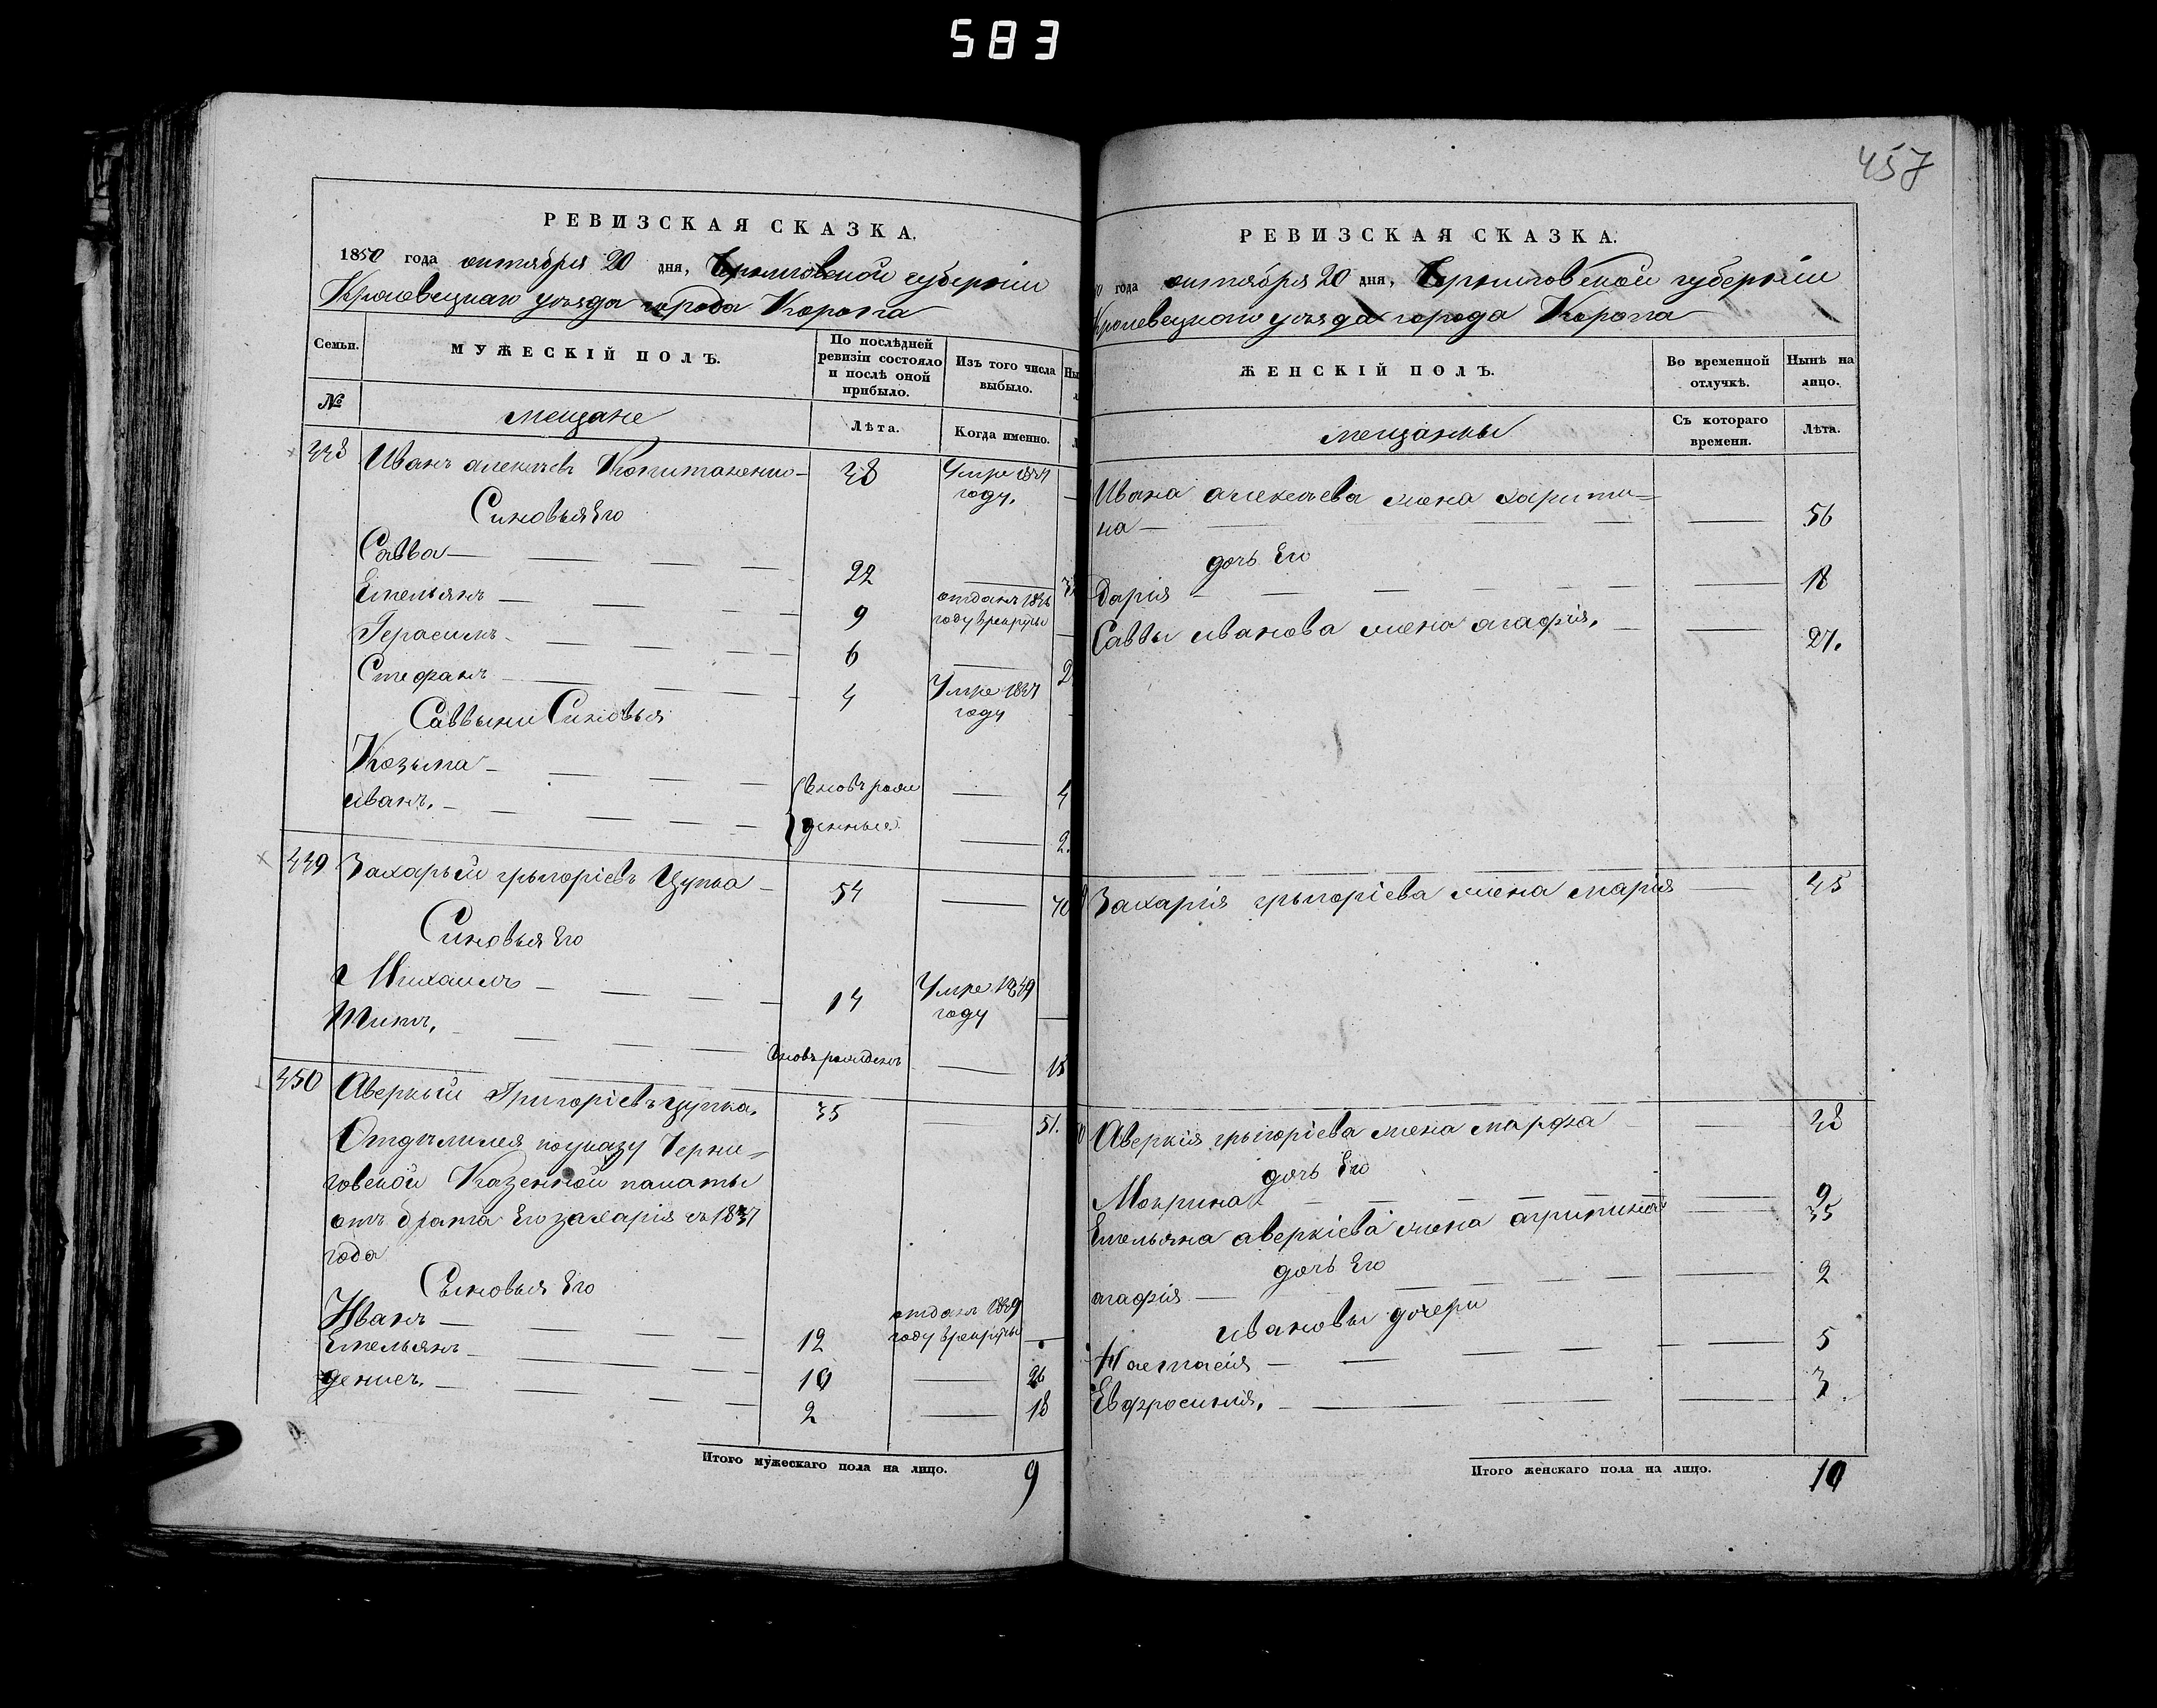 583
457
РЕВИЗСКАЯ СКАЗКА.
1850 года октября 20 дня, Черниговской губерніи
Кролевецкаго уезда города Коропа
Семьи.
МУЖЕСКІЙ ПОЛЪ.
По послѣдней
ревизіи состояло
и послѣ оной
прибыло.
Изъ того числа
выбыло.
№
мещане
Лѣта.
Когда именно.
448 Иванъ алексѣевъ 48 Умре 1847
году.
Синовья Его
Савва 22
Емельянъ 9 отданъ 1846
году в рекруты
Герасимъ 6
Стефанъ 4 Умре 1847
году
Саввыни Синовья
Козьма вновь рож 4
иванъ. денные 2.
449 Захарьй грыгоріевъ Цупка 54
Синовья Его
Михаилъ 14 Умре 1849
году
Титъ, вновь рожденъ 15
450 Аверкый Григоріевъ цупка. 35 51.
Отдѣлился по указу Черни=
говской Казенной палаты
отъ брата Его захарія съ 1837
года
Сыновья Его
Иванъ 12 отданъ 1849
году в рекруты
Емельянъ 10 26
денисъ. 2 18
Итого мужескаго пола на лицо. 9
РЕВИЗСКАЯ СКАЗКА.
года октября 20 дня, Черниговской губерніи
Кролевецкаго уезда города Коропа
ЖЕНСКІЙ ПОЛЪ.
Во временной
отлучкѣ.
Нынѣ на
лицо.
мещанки
Съ котораго
времени.
Лѣта.
Ивана алексѣева жена харити=
на 56
дочь Его
дарія 18
Саввы иванова жена агафія. 27.
Захарія грыгоріева жена марія 45
Аверкія грыгоріева жена марфа 48
дочь Его
Мокрина 9
Емельяна аверкіева жена агрипина 35
дочь Его
агафія 2
ивановы дочери
Настасія 5
Евфросинія. 3
Итого женскаго пола на лицо. 10